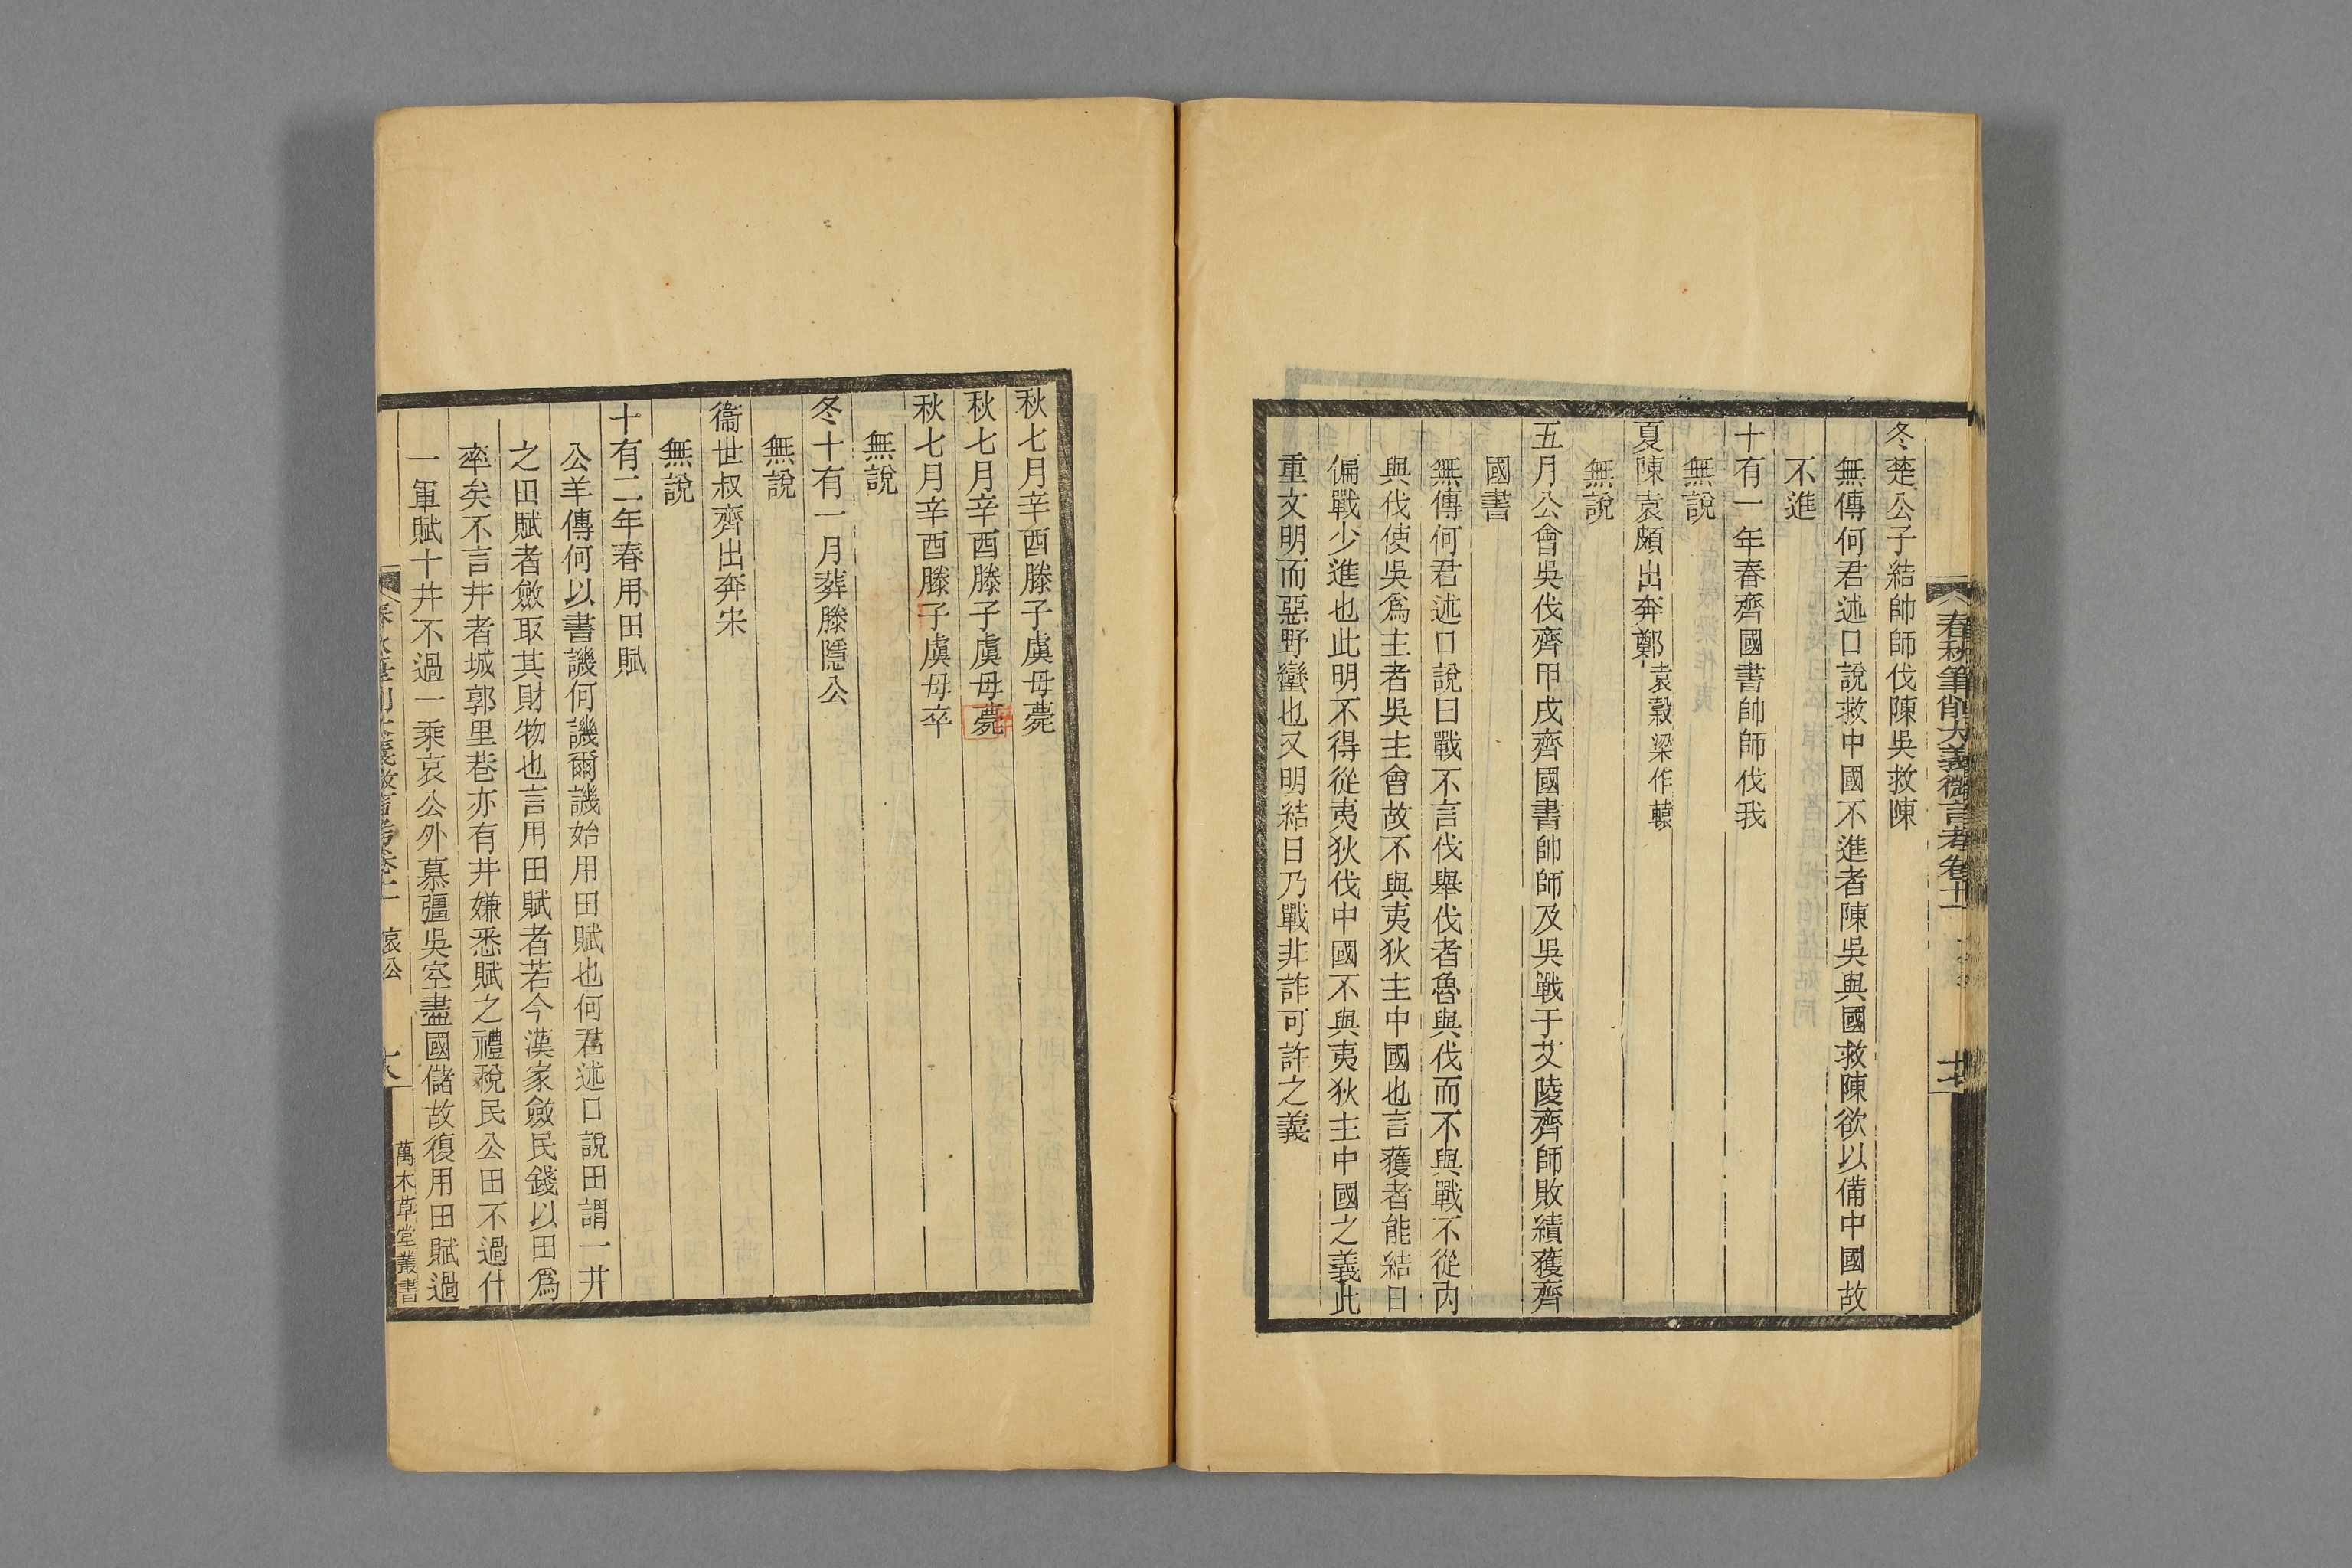 春秋筆削大義微言考卷十一
十七
冬楚公子結帥師伐陳吳救陳
無傳何君述口說救中國不進者陳吳與國救陳欲以備中國故
不進
十有一年春齊國書帥師伐我
無說
夏陳袁頗出奔鄭袁穀梁作轅
無說
五月公會吳伐齊甲戌齊國書帥師及吳戰于艾陵齊師敗績獲齊
國書
無傳何君述口說曰戰不言伐舉伐者魯與伐而不與戰不從內
與伐使吳爲主者吳主會故不與夷狄主中國也言獲者能結日
偏戰少進也此明不得從夷狄伐中國不與夷狄主中國之義此
重文明而惡野蠻也又明結日乃戰非詐可許之義
秋七月辛酉滕子虞母薨
秋七月辛酉滕子虞母薨
秋七月辛酉滕子虞母卒
無說
冬十有一月葬滕隱公
無說
衞世叔齊出奔宋
無說
十有二年春用田賦
公羊傳何以書譏何譏爾譏始用田賦也何君述口說田謂一井
之田賦者斂取其財物也言用田賦者若今漢家斂民錢以田爲
率矣不言井者城郭里巷亦有井嫌悉賦之禮稅民公田不過什
一軍賦十井不過一乘哀公外慕彊吳空盡國儲故復用田賦過
哀公
十八
萬木草堂叢書